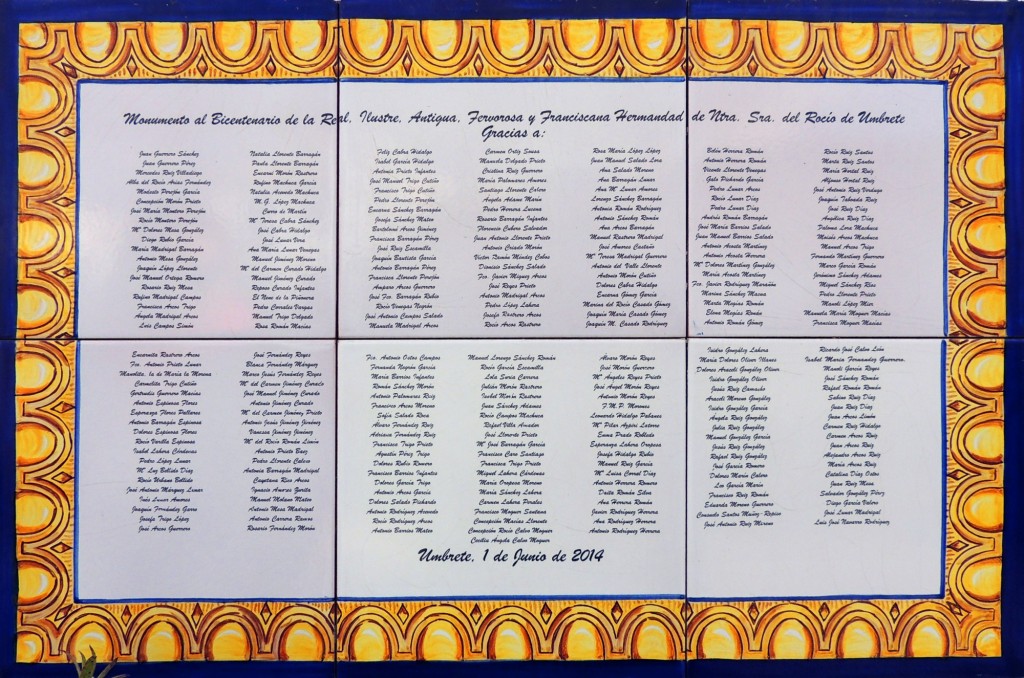 Monumento al Bicentenario de la Real, Ilustre, Antigua, Fervorosa y Franciscana Hermandad de Ntra. Sra. del Rocío de Umbrete
Gracias a:
Juan Guerrero Sánchez
Juan Guerrero Pérez
Mercedes Ruiz Villadiego
Alba del Rocío Arias Fernández
Modesto Perejón García
Concepción Morón Prieto
José María Montero Perejón
Rocío Montero Perejón
Mª Dolores Mesa González
Diego Rubio García
María Madrigal Barragán
Antonio Mesa González
Joaquín López Llorente
José Manuel Ortega Romero
Rosario Ruiz Mesa
Rufino Madrigal Campos
Francisca Arcos Trigo
Angela Madrigal Arcos
Luis Campos Simón
Natalia Llorente Barragán
Paula Llorente Barragán
Encarni Morón Rastrero
Rufino Machuca García
Natalia Acevedo Machuca
M.G. López Machuca
Curro de Martín
Mª Teresa Cabra Sánchez
José Cabra Hidalgo
José Lunar Vera
Ana María Lunar Venegas
Manuel Jiménez Moreno
Mª del Carmen Corado Hidalgo
Manuel Jiménez Corado
Reposo Corado Infantes
El Nene de la Piñonera
Pedro Corrales Vargas
Manuel Trigo Delgado
Rosa Román Macías
Feliz Cabra Hidalgo
Isabel García Hidalgo
Antonio Prieto Infantes
José Manuel Trigo Cutiño
Francisco Trigo Cutiño
Pedro Llorente Perejón
Encarna Sánchez Barragán
Josefa Sánchez Mateo
Bartolomé Arcos Jiménez
Francisca Barragán Pérez
José Ruiz Escamilla
Joaquín Bautista García
Antonio Barragán Pérez
Francisco Llorente Perejón
Amparo Arcos Guerrero
José Fco. Barragán Rubio
Rocío Venegas Negrón
José Antonio Campos Salado
Manuela Madrigal Arcos
Carmen Ortiz Sousa
Manuela Delgado Prieto
Cristina Ruiz Guerrero
María Palomares Amores
Santiago Llorente Cabero
Angela Adame Marín
Pedro Herrera Lucena
Rosario Barragán Infantes
Florencio Cubero Salvador
Juan Antonio Llorente Prieto
Antonio Criado Morón
Victor Ramón Méndez Cobos
Dionisio Sánchez Salado
Fco. Javier Míguez Arcos
José Reyes Prieto
Antonio Madrigal Arcos
Pedro López Lahera
Josefa Rastrero Arcos
Rocío Arcos Rastrero
Rosa María López López
Juan Manuel Salado Lora
Ana Salado Moreno
Ana Barragán Lunar
Ana Mª Lunar Amores
Lorenzo Sánchez Barragán
Antonio Román Rodríguez
Antonio Sánchez Román
Ana Arcos Barragán
Manuel Rastrero Madrigal
José Amores Castaño
Mª Teresa Madrigal Guerrero
Antonio del Valle Llorente
Antonio Morón Cutiño
Dolores Cabra Hidalgo
Encarna Gómez García
Marina del Rocío Casado Gómez
Joaquín María Casado Gómez
Joaquín M. Casado Rodríguez
Belén Herrera Román
Antonio Herrera Román
Vicente Llorente Venegas
Gala Pichardo García
Pedro Lunar Arcos
Rocío Lunar Díaz
Pedro Lunar Díaz
Andrés Román Barragán
José María Barrios Salado
Juan Manuel Barrios Salado
Antonio Acosta Martínez
Antonio Acosta Herrera
Mª Dolores Martínez González
María Acosta Martínez
Fco. Javier Rodríguez Marañón
Marina Sánchez Macua
Marta Megías Román
Elena Megías Román
Antonio Román Gómez
Rocío Ruiz Santos
Marta Ruiz Santos
María Hostal Ruiz
Alfonso Hostal Ruiz
José Antonio Ruiz Verdugo
Joaquín Taboada Ruiz
José Ruiz Díaz
Angélica Ruiz Díaz
Paloma Lora Machuca
Moisés Arcos Machuca
Manuel Arcos Trigo
Fernando Martínez Guerrero
Marco García Román
Jerónimo Sánchez Adames
Miguel Sánchez Ríos
Pedro Llorente Prieto
Manoli López Mier
Manuela María Moguer Macías
Francisca Moguer Macías
Encarnita Rastrero Arcos
Fco. Antonio Prieto Lunar
Manolito, la de María la Morena
Carmelita Trigo Cutiño
Gertrudis Guerrero Macías
Antonio Espinosa Flores
Esperanza Flores Pallares
Antonio Barragán Espinosa
Dolores Espinosa Flores
Rocío Varilla Espinosa
Isabel Lahera Cárdenas
Pedro López Lunar
Mª Luz Bellido Díaz
Rocío Urbano Bellido
José Antonio Márquez Lunar
Inés Lunar Amores
Joaquín Fernández Garro
Josefa Trigo López
José Arcos Guerrero
José Fernández Reyes
Blanca Fernández Márquez
Marco Jesús Fernández Reyes
Mª del Carmen Jiménez Corado
José Manuel Jiménez Corado
Antonio Jiménez Corado
Mª del Carmen Jiménez Prieto
Antonio Jesús Jiménez Jiménez
Vanessa Jiménez Jiménez
Mª del Rocío Román Limón
Antonio Prieto Báez
Pedro Llorente Calero
Antonio Barragán Madrigal
Cayetana Ríos Arcos
Ignacio Amores Zorita
Manuel Moleno Mateo
Antonio Mesa Madrigal
Antonio Carrera Ramos
Rosario Fernández Morón
Fco. Antonio Ostos Campos
Fernando Negrón García
María Barrios Infantes
Ramón Sánchez Morón
Antonio Palomares Ruiz
Francisco Arcos Moreno
Sofía Salado Rosa
Alvaro Fernández Ruiz
Adriana Fernández Ruiz
Francisca Trigo Prieto
Agustín Pérez Trigo
Dolores Rubio Romero
Francisco Barrios Infantes
Dolores García Trigo
Antonio Arcos García
Dolores Salado Pichardo
Antonio Rodríguez Acevedo
Rocío Rodríguez Arcos
Antonio Barrios Mateo
Manuel Lorenzo Sánchez Román
Rocío García Escamilla
Lola Soria Carrero
Julián Morón Rastrero
Isabel Morón Rastrero
Juan Sánchez Adames
Rocío Campos Machuca
Rafael Villa Amador
José Llorente Prieto
Mª José Barragán García
Francisco Caro Santiago
Francisco Trigo Prieto
Miguel Lahera Cárdenas
María Oropesa Moreno
María Sánchez Lahera
Carmen Lahera Perales
Francisco Moguer Santana
Concepción Macías Llorente
Concepción Rocío Calvo Moguer
Cecilia Angela Calvo Moguer
Alvaro Morón Reyes
José Morón Guerrero
Mª Angeles Reyes Prieto
José Angel Morón Reyes
Antonio Morón Reyes
F.M.P. Morenos
Leonardo Hidalgo Pabanes
Mª Pilar Azpiri Latorre
Emma Prado Robledo
Esperanza Lahera Oropesa
Josefa Hidalgo Rubio
Manuel Ruiz García
Mª Luisa Corral Díaz
Antonio Herrera Romero
Dacita Román Silva
Ana Herrera Román
Javier Rodríguez Herrera
Ana Rodríguez Herrera
Antonio Rodríguez Herrera
Isidro González Lahera
María Dolores Oliver Illanes
Dolores Araceli González Oliver
Isidro González Oliver
Jesús Ruiz Camacho
Araceli Moreno González
Isidro González García
Angela Ruiz González
Julia Ruiz González
Manuel González García
Jesús Ruiz González
Rafael Ruiz González
José García Romero
Dolores Marín Calero
Leo García Marín
Francisco Ruiz Román
Eduarda Moreno Guerrero
Consuelo Santos Muñoz-Repiso
José Antonio Ruiz Moreno
Ricardo José Calvo León
Isabel María Fernández Guerrero.
Manoli García Reyes
José Sánchez Román
Rafael Román Román
Sabina Ruiz Díaz
Juan Ruiz Díaz
Juan Arcos Limón
Carmen Ruiz Hidalgo
Carmen Arcos Ruiz
Juan Arcos Ruiz
Alejandro Arcos Ruiz
María Arcos Ruiz
Catalina Díaz Ostos
Juan Ruiz Mesa
Salvador González Pérez
Diego García Valero
José Lunar Madrigal
Luis José Navarro Rodríguez
Umbrete, 1 de Junio de 2014